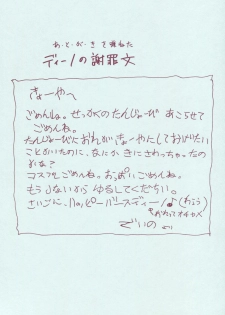 あ・と・が・きで兼ねた
ディーノの謝罪文
きょーやへ
ごめんね。せっかくのたんじょーび おこらせて
ごめんね。
たんじょーびにおれがきょーやにしてあげたい
ことがいたのに、なにか きにさわっちゃったの
かな？
コスプレごめんね。おっぱいごめんね。
もうしないから ゆるしてください。
さいごに、ハッピーバースディーノ♪(わらう)
でぃの